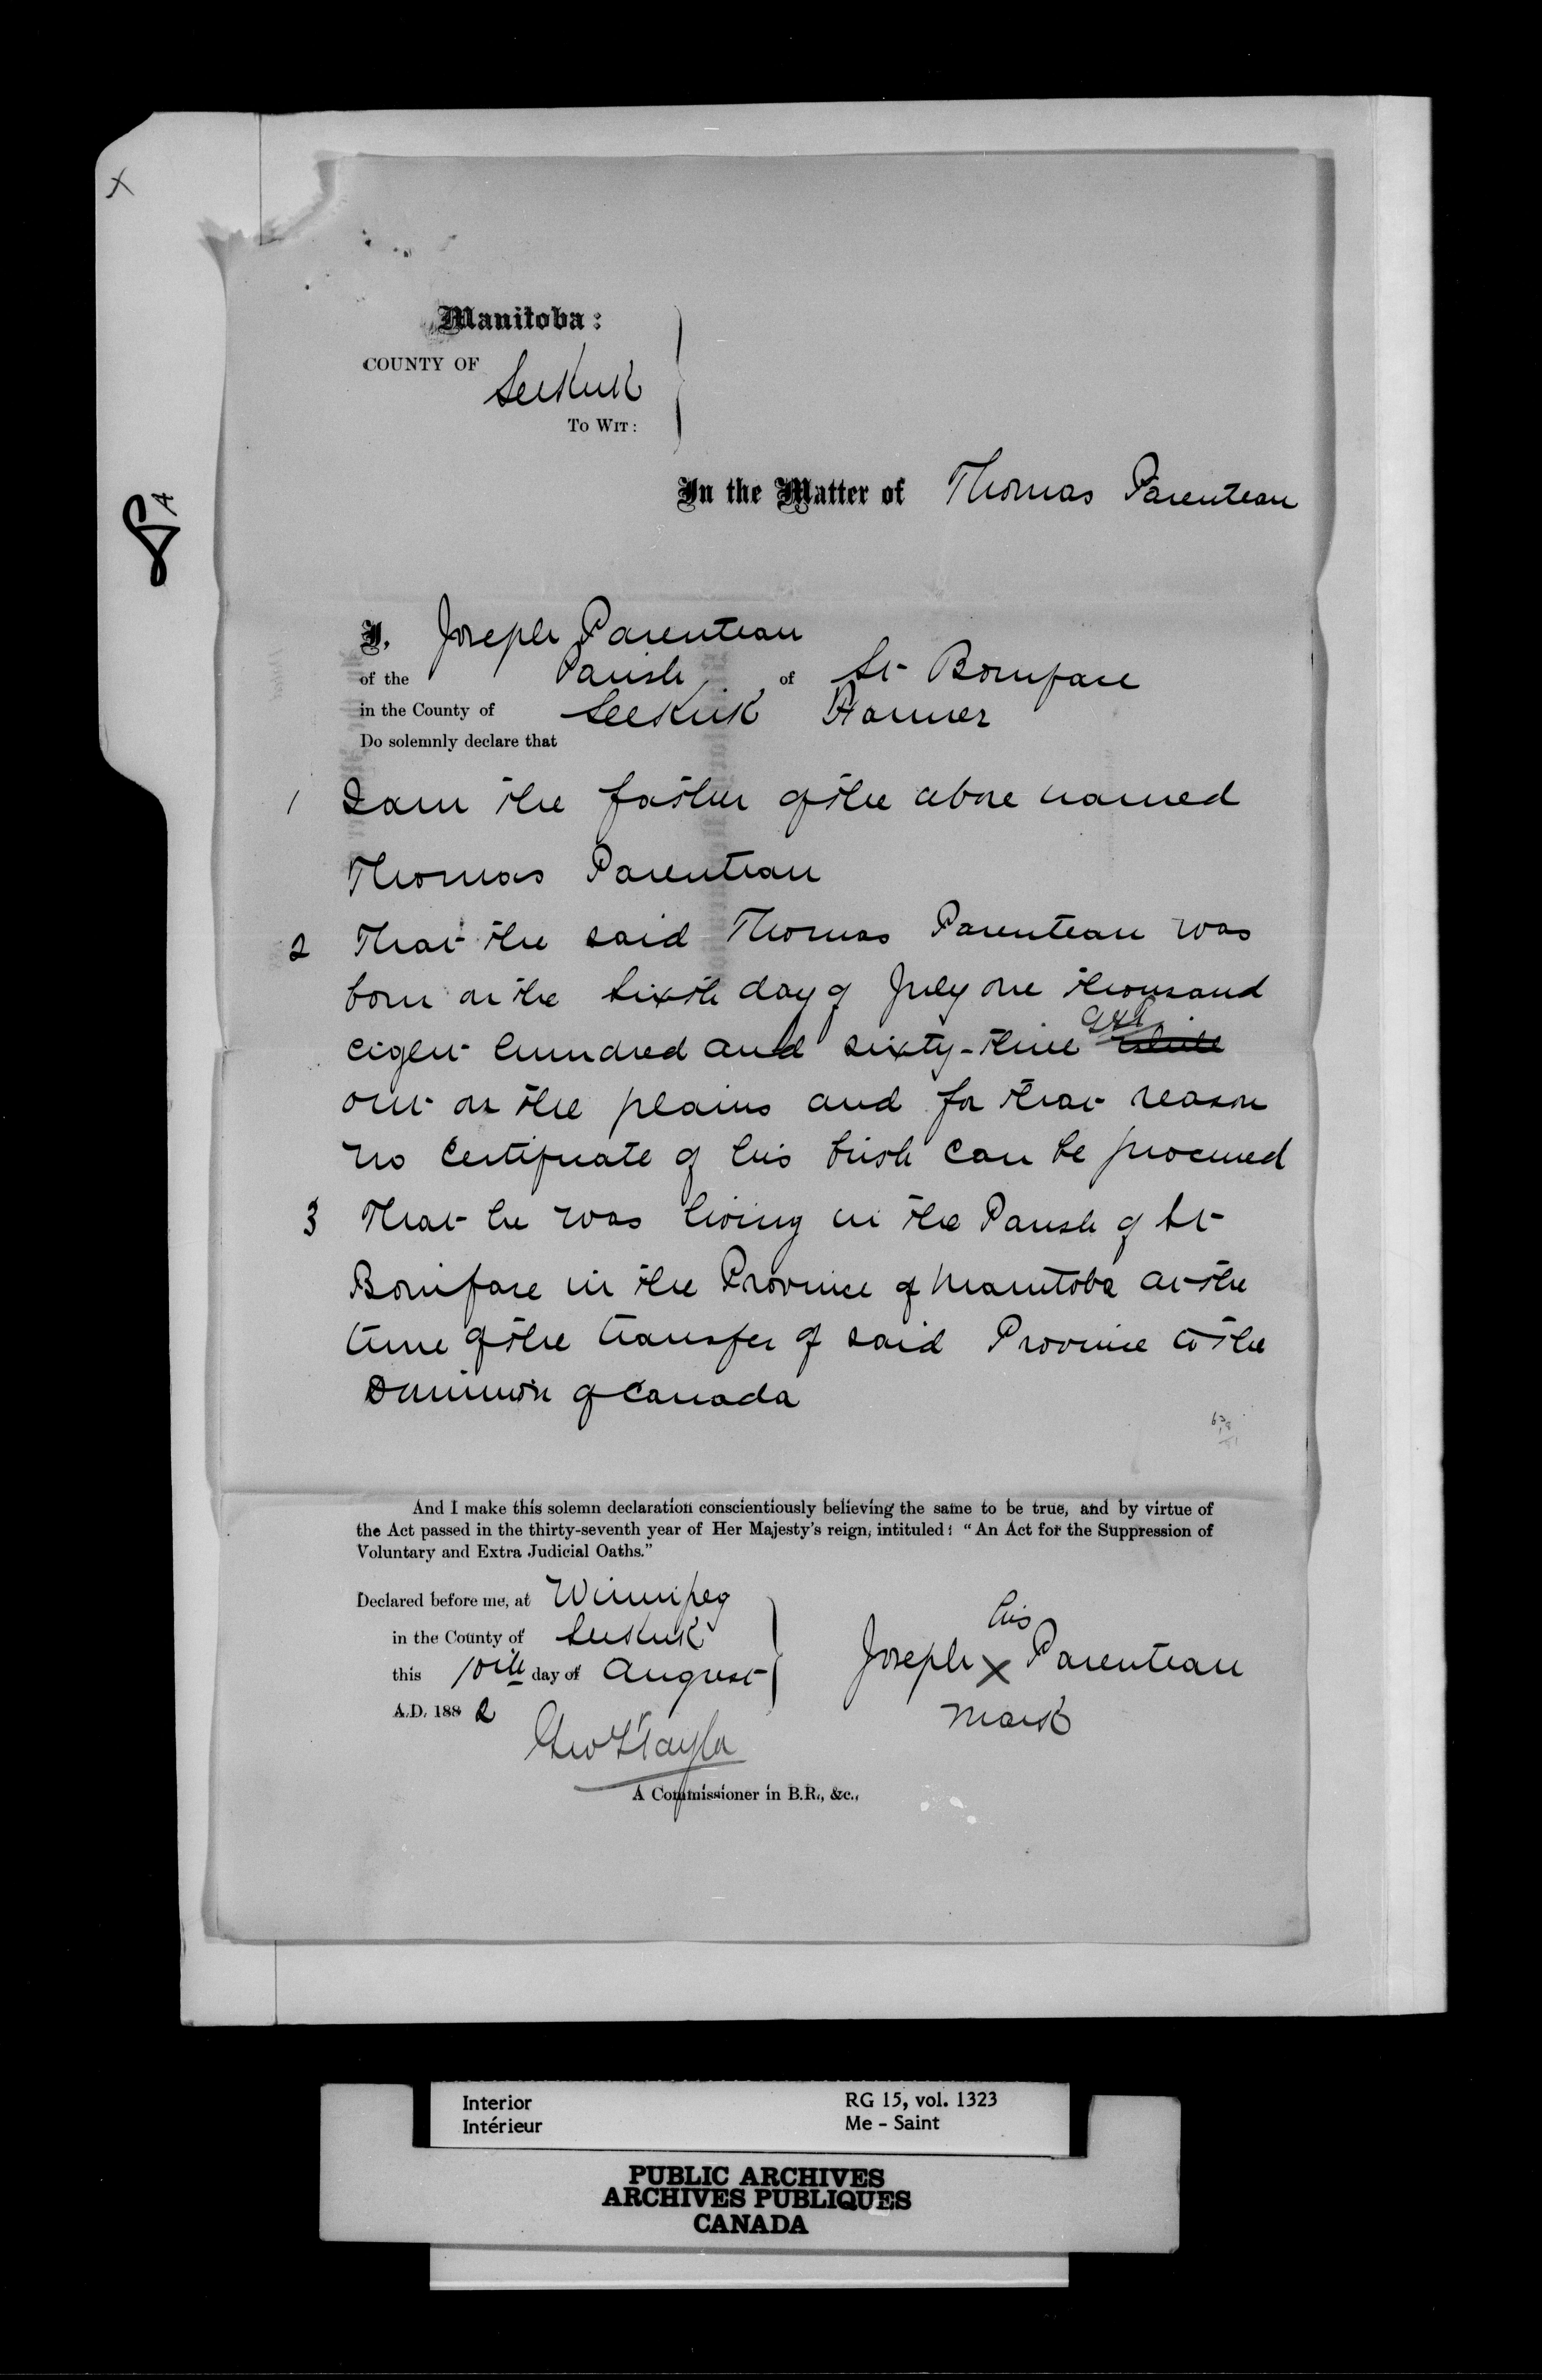 Manitoba:
COUNTY OF Selkirk
To Wit:
In the Matter of Thomas Parenteau
I, Joseph Parenteau
of the Parish of St Boniface
in the County of Selkirk Farmer
Do solemnly declare that
1 I am the father of the above named
Thomas Parenteau
2 That the said Thomas Parenteau was
born on the sixth day of July one thousand
eight hundred and sixty-three while
out on the plains and for that reason
no certificate of his birth can be procured
3 That he was living in the Parish of St
Boniface in the Province of Manitoba at the
time of the transfer of said Province to the
Dominion of Canada
And I make this solemn declaration conscientiously believing the same to be true, and by virtue of
the Act passed in the thirty-seventh year of Her Majesty's reign, intituled: "An Act for the Suppression of
Voluntary and Extra Judicial Oaths."
Declared before me, at Winnipeg
in the County of Selkirk
this 10th day of August
A.D. 1882
his
Joseph X Parenteau
mark
A Commissioner in B.R., &c.,
Interior RG 15, vol. 1323
Intérieur Me - Saint
PUBLIC ARCHIVES
ARCHIVES PUBLIQUES
CANADA